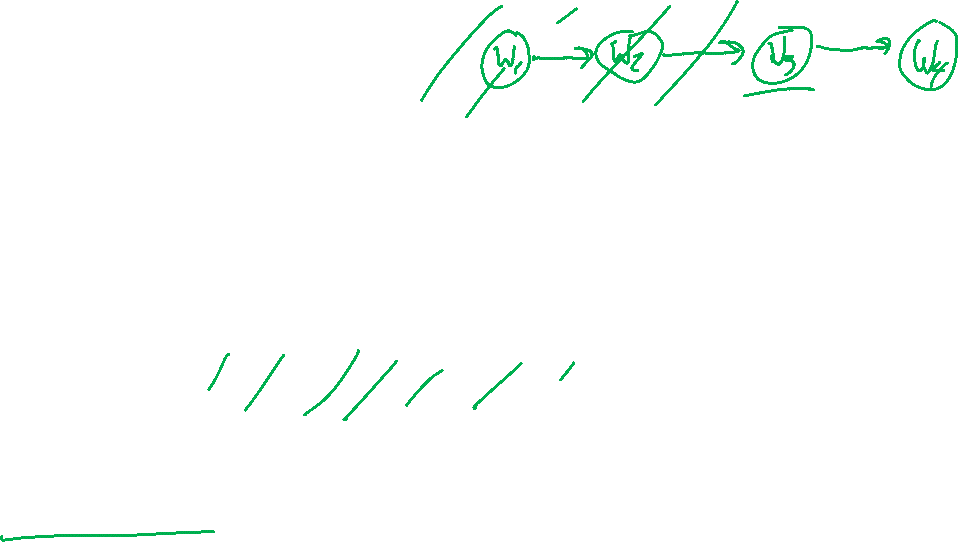 W1 → W2 → W3 → W4